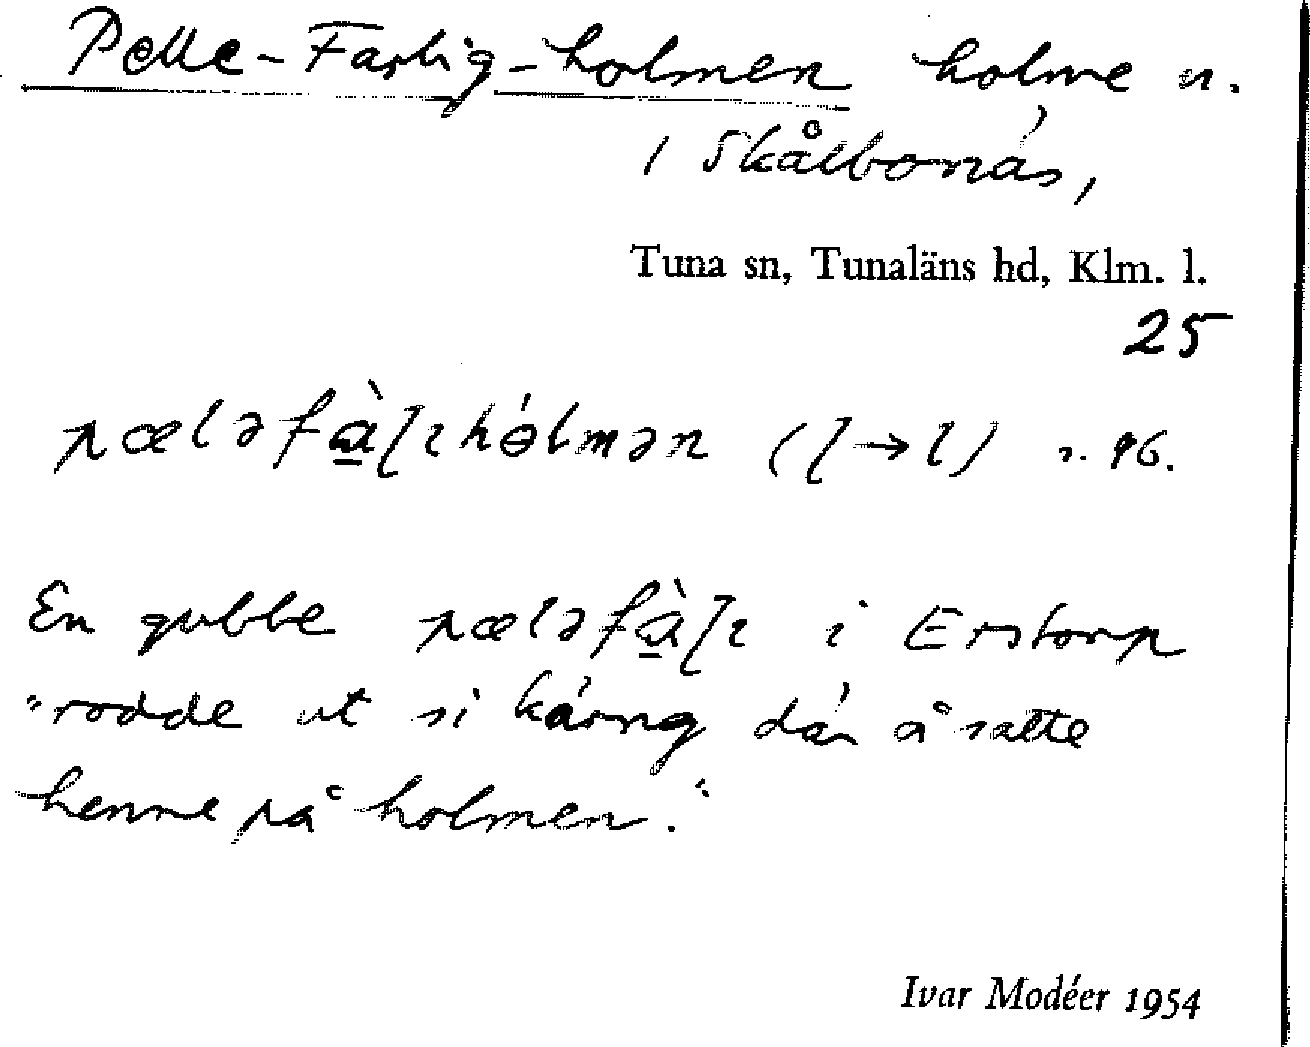 Pelle-Farlig-holmen holme n.
i Skälbonäs,
Tuna sn, Tunaläns hd, Klm. l.
25
pæləfàɭıhólmən (ɭ→l) s. 96.
En gubbe pæləfàɭı i Erstorp
"rodde ut si käring där å satte
henne på holmen."
Ivar Modéer 1954